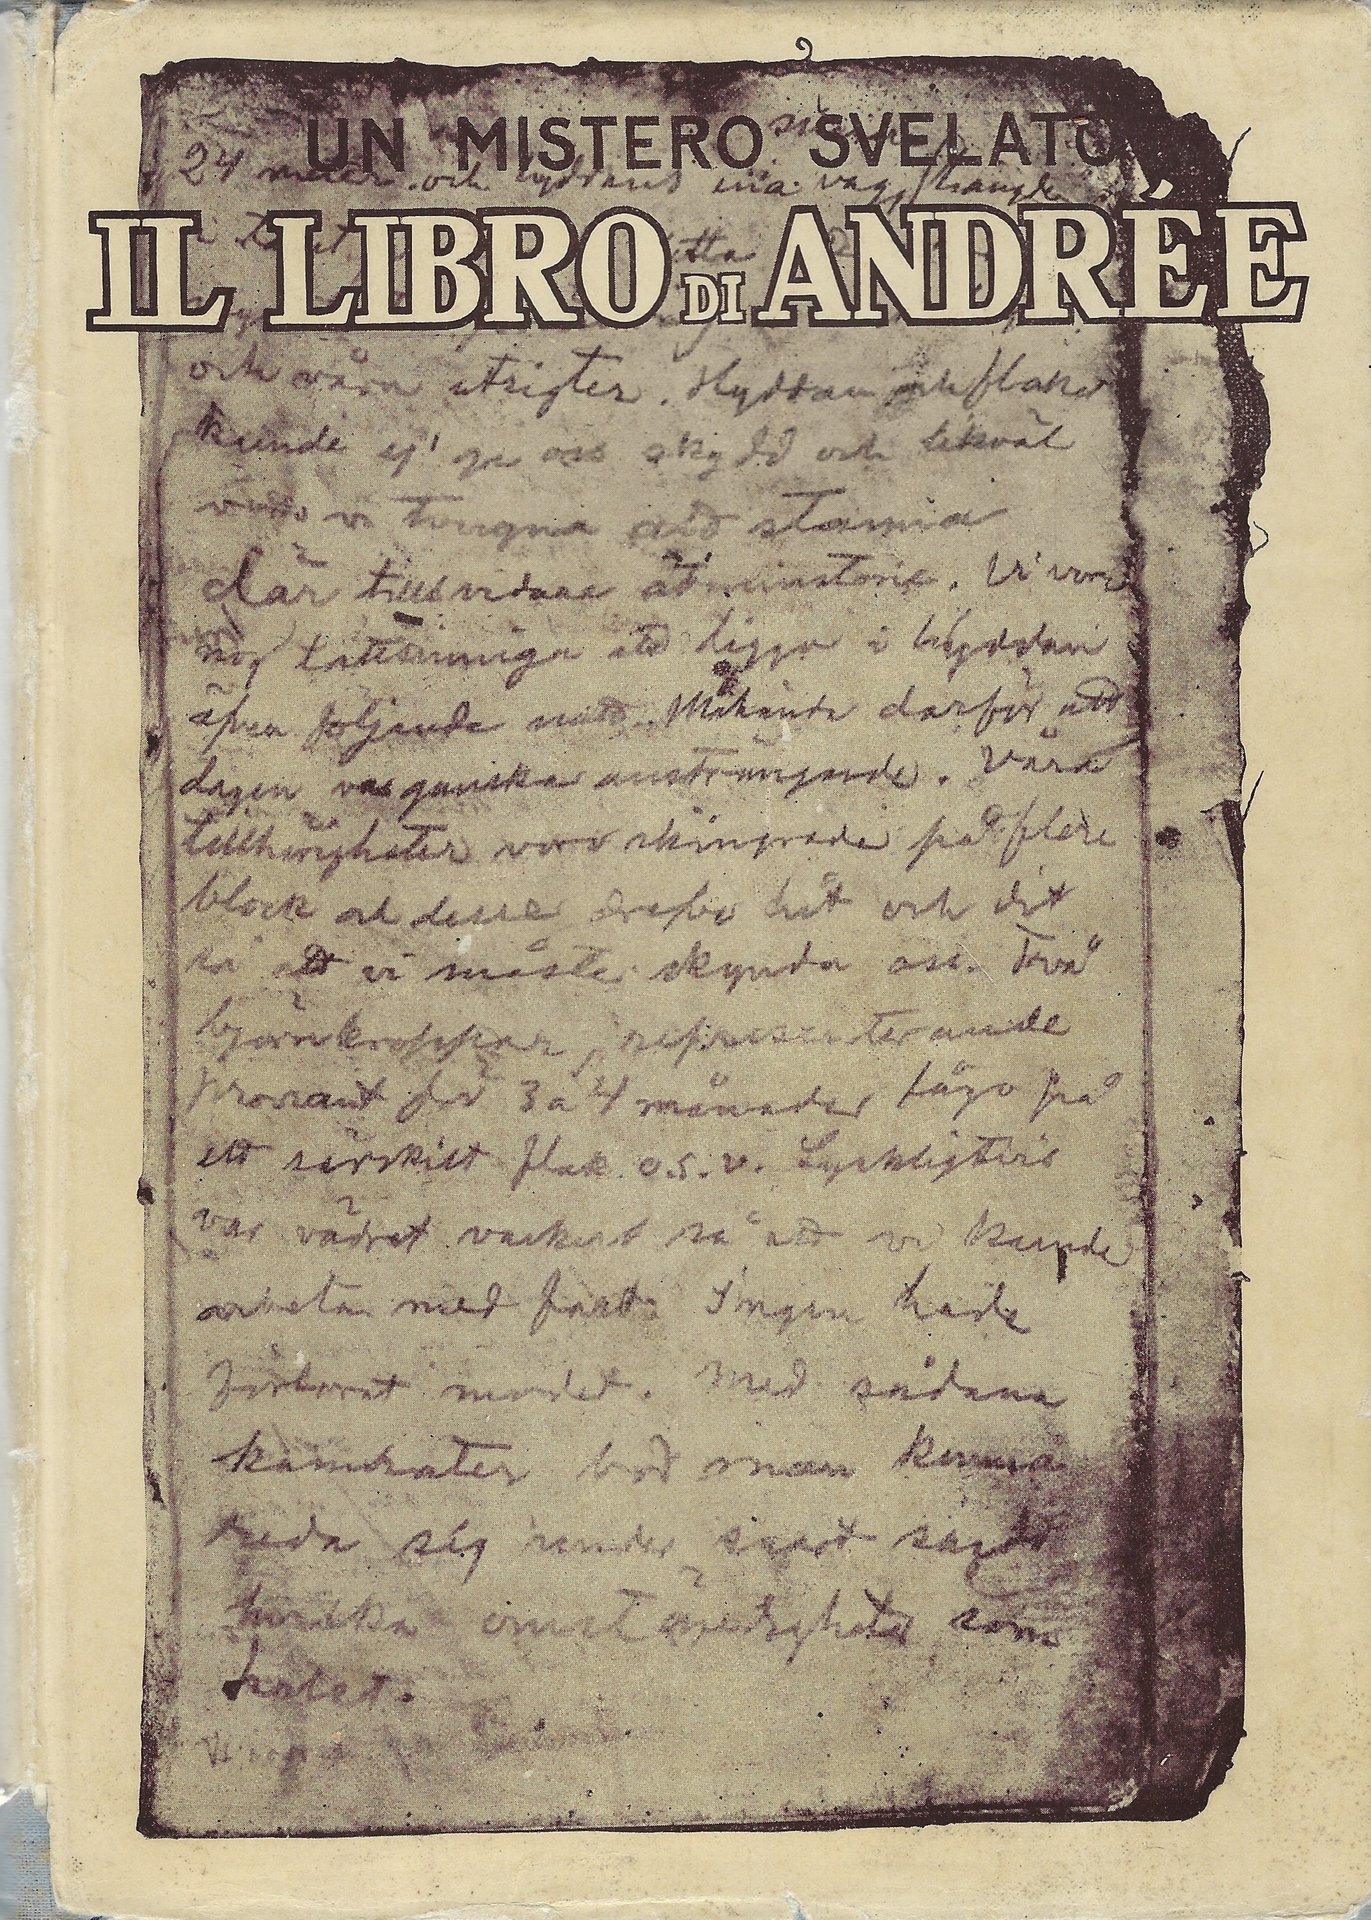 UN MISTERO SVELATO
IL LIBRO DI ANDRÉE
24 meter och hyddans ena vägg hängde
detta
och våra utsigter. Hyddan och flaket
kunde ej ge oss skydd och likväl
vi tvugna att stanna
där tillsvidare åtminstone. Vi voro
nog lättsinniga att ligga i hyddan
äfven följande natt. Måhända därför att
dagen var ganska ansträngande. Våra
tillhörigheter voro skingrade på flere
block och dessa drefvo hit och dit
så att vi måste skynda oss. Två
björnkroppar, representerande
proviant för 3 a 4 månader lågo på
ett särskilt flak o.s.v. Lyckligtvis
var vädret vackert så att vi kunde
arbeta med fart. Ingen hade
förlorat modet. Med sådana
kamrater bör man kunna
reda sig under snart sagdt
hvilka omständigheter som
helst.